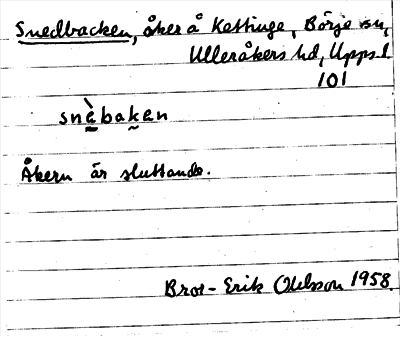 Snedbacken, åker å Kettinge, Börje sn,
Ulleråkers hd, Upps. l
101
snèbaken
Åkern är sluttande.
Bror-Erik Ohlsson 1958.